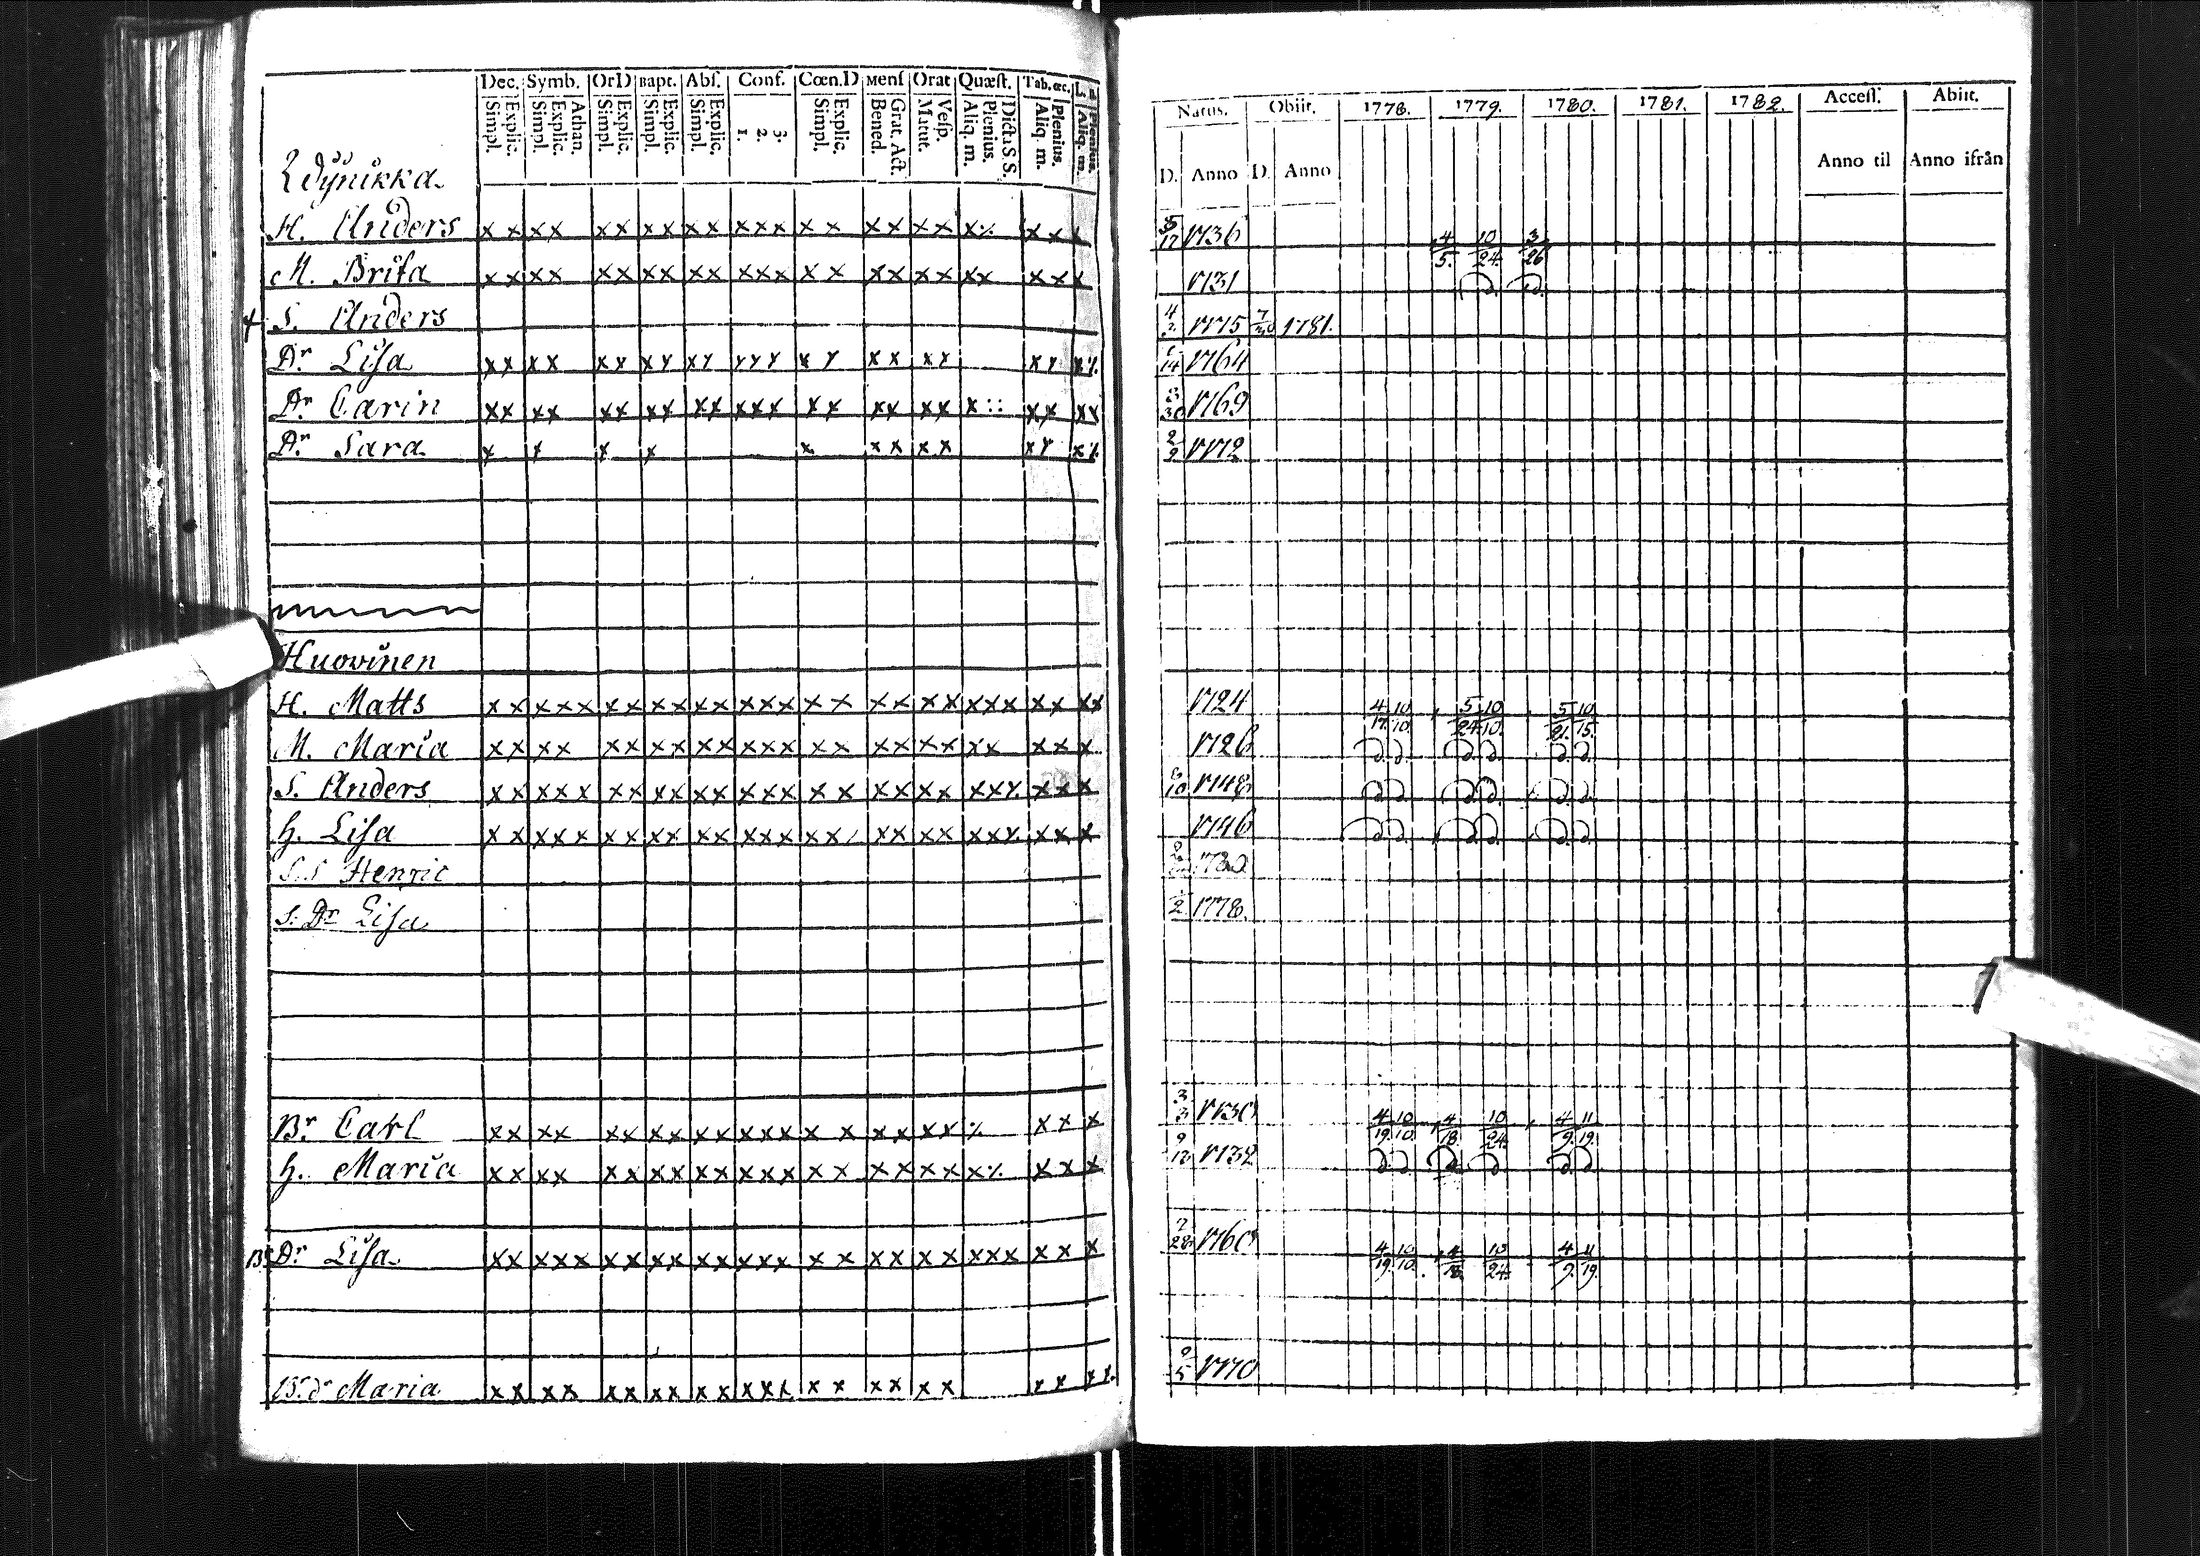 Dec. Symb. OrD Bapt. Abſ. Conf. Cœn.D Menſ Orat Quæſt. Tab.&c. L. n
Explic. Simpl. Athan. Explic. Simpl. Explic. Simpl. Explic. Simpl. Explic. Simpl. 3. 2. 1. Explic. Simpl. Grat. Act. Bened. Veſp. Matut. Dicta S.S. Plenius. Aliq. m. Plenius. Aliq. m. Plenius. Aliq. m.
H. Anders x x x x x x x x x x x x x x x x x x x x ⁒ x x x
M. Brita x x x x x x x x x x x x x x x x x x x x x x x x
S. Anders
Dr Liſa x x x x x x x x x x x x x x x x x x x x x x ⁒
Dr Carin x x x x x x x x x x x x x x x x x x x x :: x x x x
Dr Sara x x x x x x x x x x x x ⁒
Huovinen
H. Matts x x x x x x x x x x x x x x x x x x x x x x x x x x x
M. Maria x x x x x x x x x x x x x x x x x x x x x x x x
S. Anders x x x x x x x x x x x x x x x x x x x x x x ⁒ x x x
h. Liſa x x x x x x x x x x x x x x x x x x x x x x ⁒ x x x
S.S Henric
S. Dr Liſa
Br Carl x x x x x x x x x x x x x x x x x x x ⁒ x x x
h. Maria x x x x x x x x x x x x x x x x x x x x ⁒ x x x
Br Dr Liſa x x x x x x x x x x x x x x x x x x x x x x x x x
Br dr Maria x x x x x x x x x x x x x x x x x x x x x x ⁒
Natus. Obiit. 1778. 1779. 1780. 1781. 1782. Acceſſ. Abiit.
D. Anno D. Anno Anno til Anno ifrån
5/12 1736 4/5. 10/24. 3/26
1731
1775 1781.
1764
1769
2/9 1772
1724 4/17. 10/10. 5/24. 10/10. 5/21. 10/15.
1726
1748
1746
1780
1778.
3/3 1730 4/19. 10/10. 4/18. 10/24. 4/9. 11/19.
9/12 1732
2/28 1760 4/19. 10/10. 4/18. 10/24. 4/9. 11/19.
9/5 1770